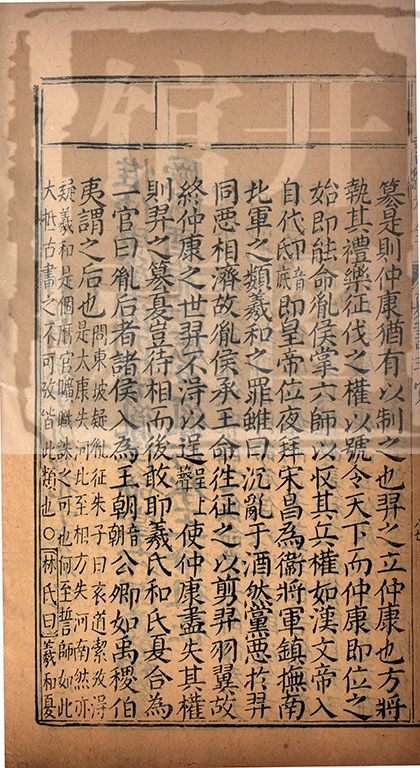 篡是則仲康猶有以制之也羿之立仲康也方將
執其禮樂征伐之權以號令天下而仲康即位之
始即能命胤侯掌六師以收其兵權如漢文帝入
自代邸音底即皇帝位夜拜宋昌為衛將軍鎮撫南
北軍之類羲和之罪雖曰沉亂于酒然黨惡於羿
同惡相濟故胤侯承王命徃征之以剪羿羽翼故
終仲康之世羿不得以逞逞上聲使仲康盡失其權
則羿之篡夏豈待相而後敢耶羲氏和氏夏合為
一官曰胤后者諸侯入為王朝音朝公卿如禹稷伯
夷謂之后也問東坡疑胤征朱子曰衮道潔攷得
是太康失河北至相方失河南然亦
疑羲和是個曆官曠職誅之可也何至誓師如此
大抵古書之不可攷皆此類也○林氏曰羲和夏